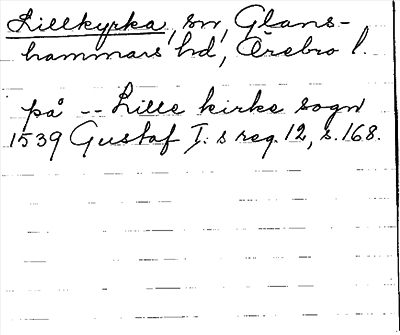 Lillkyrka, sn, Glans-
hammars hd, Örebro l.
på -- Lille kirke sogn
1539 Gustaf I:s reg. 12, s. 168.